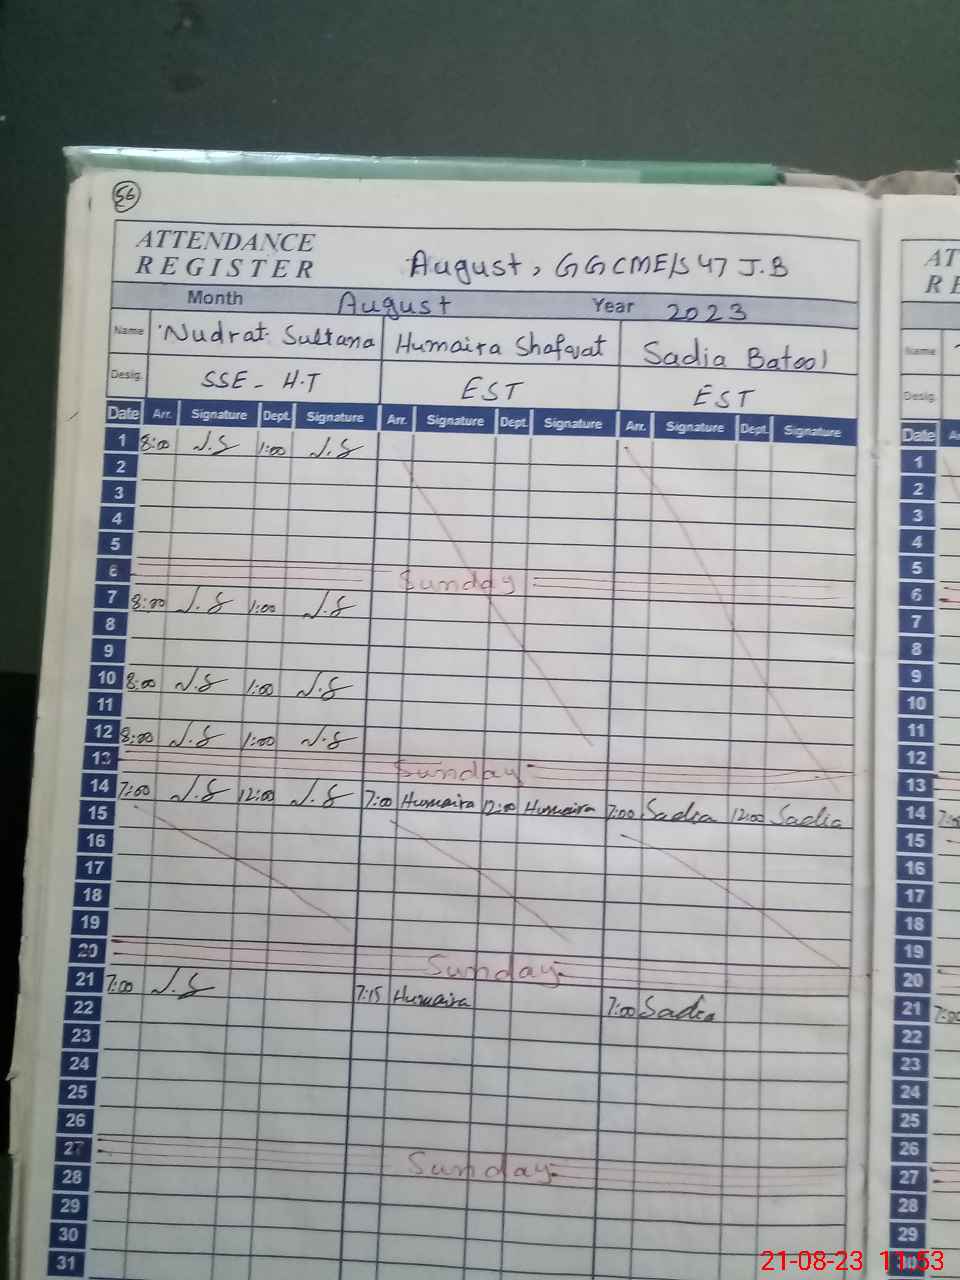 56
ATTENDANCE
REGISTER
August, GGCMES 47 J.B
Month August Year 2023
Name Nudrat Sultana Humaira Shafqat Sadia Batool
Desig. SSE - H.T EST EST
Date Arr. Signature Dept. Signature Arr. Signature Dept. Signature Arr. Signature Dept. Signature
1 8:00 N.S 1:00 N.S
2
3
4
5
6 Sunday
7 8:00 N.S 1:00 N.S
8
9
10 8:00 N.S 1:00 N.S
11
12 8:00 N.S 1:00 N.S
13 Sunday
14 7:00 N.S 12:00 N.S 7:00 Humaira 12:00 Humaira 7:00 Sadia 12:00 Sadia
15
16
17
18
19
20 Sunday
21 7:00 N.S 7:15 Humaira 7:00 Sadia
22
23
24
25
26
27 Sunday
28
29
30
31
AT
RE
Name
Desig.
Date
1
2
3
4
5
6
7
8
9
10
11
12
13
14
15
16
17
18
19
20
21 7:00
22
23
24
25
26
27
28
29
30
21-08-23 11:53